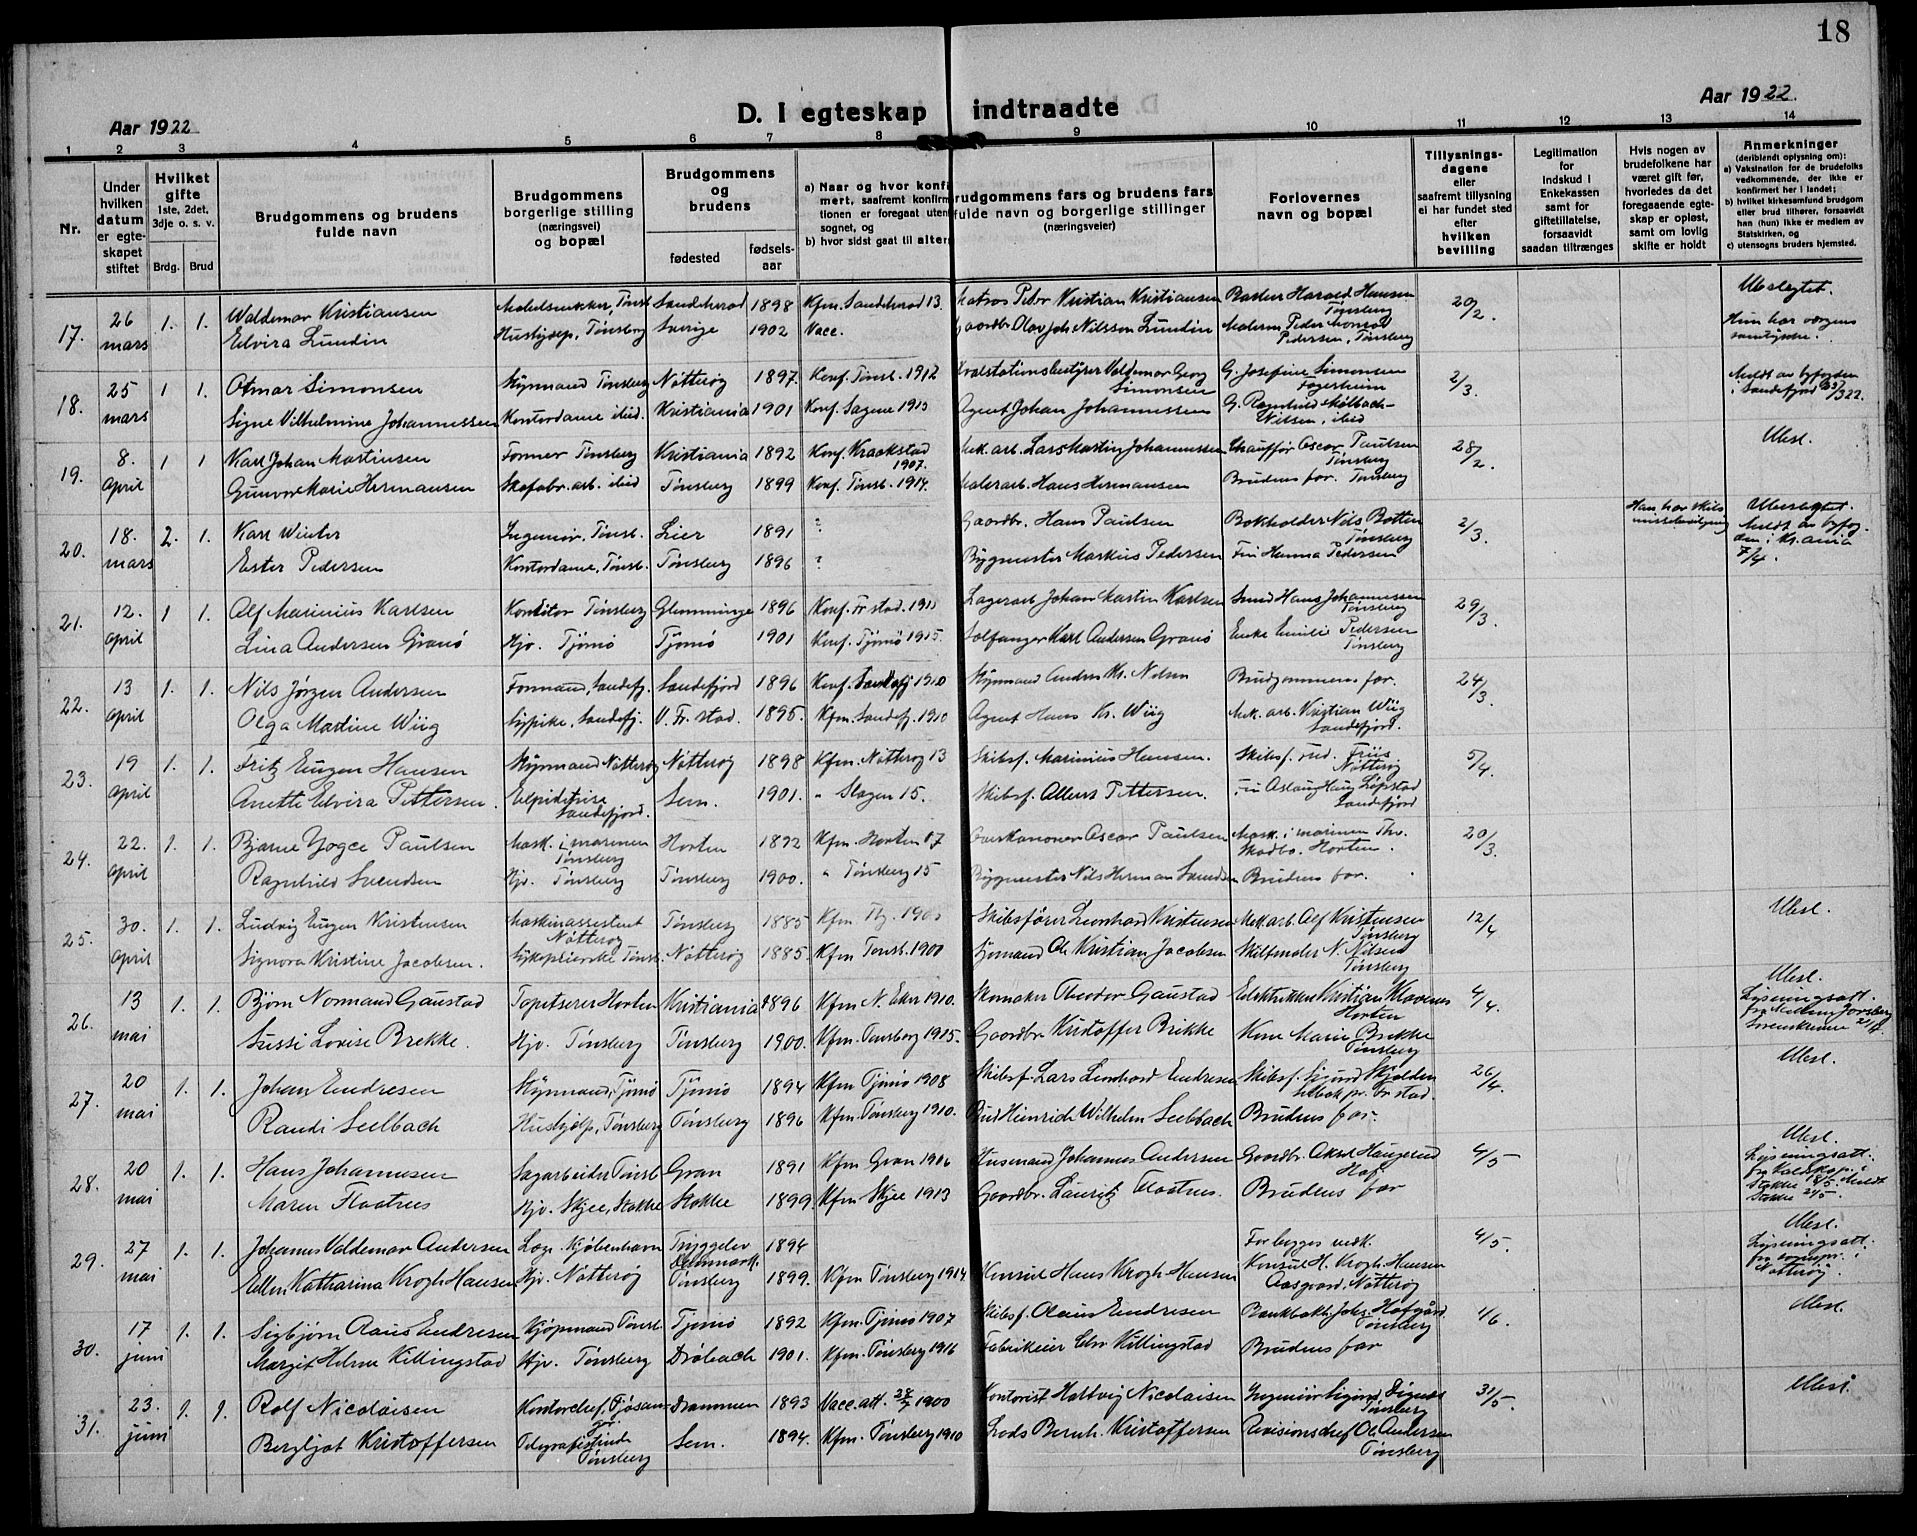 18
Aar 1922
D. I egteskap indtraadte
Aar 1922.
1 2 3 4 5 6 7 8 9 10 11 12 13 14
Nr.
Under hvilken datum er egteskapet stiftet
Hvilket gifte 1ste, 2det, 3dje o. s. v.
Brdg. Brud
Brudgommens og brudens fulde navn
Brudgommens borgerlige stilling (næringsvei) og bopæl
Brudgommens og brudens
fødested
fødsels-aar
a) Naar og hvor konfi
mert, saafremt konfirm
tionen er foregaat uten
sognet, og
b) hvor sidst gaat til alter
rudgommens fars og brudens fars
fulde navn og borgerlige stillinger
(næringsveier)
Forlovernes navn og bopæl
Tillysnings-dagene eller saafremt tillysning ei har fundet sted efter hvilken bevilling
Legitimation for Indskud i Enkekassen samt for giftetillatelse, forsaavidt saadan tiltrænges
Hvis nogen av brudefolkene har været gift før, hvorledes da det foregaaende egteskap er opløst, samt om lovlig skifte er holdt
Anmerkninger
(deriblendt oplysning om):
a) Vaksination for de brudefolks vedkommende, der ikke er konfirmert her i landet;
b) hvilket kirkesamfund brudgom eller brud tilhører, forsaavidt han (hun) ikke er medlem av Statskirken, og
c) utensogns bruders hjemsted.
17. 26 mars 1. 1. Waldemar Kristiansen Sandeherad 1898 Kfm. Sandeherad 13. Matros Peder Kristian Kristiansen Harald Hansen Tønsberg 20/2 Ubeslegtet.
Elvira Lundin Hushjælp, Tønsberg Sverige 1902 Vacc. Gaardbr. Olav Joh. Nilsson Lundin Peder Pedersen, Tønsberg Hun har værgens samtykke.
18. 25 mars 1 1. Otmar Simonsen Styrmand Tønsberg Nøtterøy 1897. Konf. Tønsb. 1912 Hvalstationsbestyrer Valdemar Georg Simonsen G. Josefine Simonsen Fagerheim 2/3. Meldt av byfogden i Sandefjord 25/3 22.
Signe Vilhelmine Johannessen Kontordame ibid. Kristiania 1901 Konf. Sagene 1915 Agent Johan Johannessen G. Ragnhild Mølbach-Nilsen, ibid
19. 8. April 1 1 Karl Johan Martinsen Former Tønsberg Kristiania 1892 Konf. Kraakstad 1907. Mek. arb. Lars Martin Johannessen Chauffør Oscar Paulsen Tønsberg 28/2. Ubesl.
Gunvor Marie Hermansen Skofabr. arb. ibid Tønsberg 1899 Konf. Tønsb. 1914. Malerarb. Hans Hermansen Brudens far. Tønsberg
20. 18. mars 2. 1. Karl Winter Ingeniør, Tønsb. Lier 1891 ? Gaardbr. Hans Paulsen Bokholder Nils Botten Tønsberg 2/3. Han har skilsmissebevilgning Ubeslegtet. Meldt av byfogden i Kr.ania 7/4.
Ester Pedersen Kontordame, Tønsb. Tønsberg 1896 ? Bygmester Markus Pedersen Fru Hanna Pedersen
21. 12. April 1 1. Alf Marinius Karlsen Konditor Tønsberg Glemminge 1896 Konf. Fr.stad. 1911 Lagerarb. Johan Martin Karlsen Hans Johannessen Tønsberg 29/3.
Lina Andersen Granø Hjv. Tjømø Tjømø 1901 Konf. Tjømø 1915. Sælfanger Karl Andersen Granø Enke Emilie Pedersen Tønsberg
22. 13 April 1. 1. Nils Jørgen Andersen Formand, Sandefj. Sandefjord 1896 Konf. Sandefj 1910 Styrmand Anders Kr. Nilsen Brudgommens far. 24/3.
Olga Martine Wiig Sypike, Sandefj. V. Fr.stad. 1895. Kfm. Sandefj. 1910 Agent Hans Kr. Wiig Mek. arb. Kristian Wiig Sandefjord.
23. 19 April 1. 1. Fritz Eugen Hansen Styrmand Nøtterøy Nøtterøy 1898 Kfm. Nøtterøy 13 Skibsf. Marinius Hansen. Skibsf. Friis Nøtterøy 5/4.
Anette Elvira Pettersen. Sandefjord. Sem. 1901. " Slagen 15. Skibsf. Pettersen. Fru Aslaug Løpstad Sandefjord
24. 22. April 1. 1. Bjarne Yngve Paulsen Mask. i marinen Tønsberg Horten 1892 Kfm. Horten 07 Overkanoner Oscar Paulsen Mask. i marinen Thv. Skadbo. Horten. 20/3.
Ragnhild Svendsen Hjv. Tønsberg Tønsberg 1900. " Tønsberg 15 Bygmester Nils Herman Svendsen Brudens far.
25. 30. April 1. 1. Ludvig Eugen Kristensen Maskinassistent Nøtterøy Tønsberg 1885 Kfm. Tbg. Skibsfører Leonhard Kristensen Mek. arb. Alf Kristensen Tønsberg 12/4 Ubesl.
Signora Kristine Jacobsen. Nøtterøy 1885. Kfm Tønsb. 1900 Sjømand Ole Kristian Jacobsen N. Nilsen Tønsberg
26. 13 mai 1. 1. Bjørn Normand Gaustad Tapetserer Horten Kristiania 1896 Kfm N. Eker 1910. Skomaker Theodor Gaustad Kristian Klavenes Horten 4/4. Ubesl. Lysningsatt.
Sussi Lovise Brekke. Hjv. Tønsberg Tønsberg 1900. Kfm. Tønsberg 1915. Gaardbr. Kristoffer Brekke Kone Marie Brekke Tønsberg
27. 20 mai 1. 1. Johan Endresen Styrmand, Tjømø Tjømø 1894 Kfm Tjømø 1908 Skibsf. Lars Leonhard Endresen Skibsf. Sigurd Skjelden Selbak pr. Fr.stad. 26/4. Ubesl.
Randi Seelbach Hushjælp, Tønsberg Tønsberg 1896 Kfm. Tønsberg 1910. Bud Heinrich Wilhelm Seelbach Brudens far.
28. 20 mai 1. 1. Hans Johannesen Sagarbeider Tønsb Gran 1891 Kfm Gran 1906 Husmand Johannes Andersen Gaardbr. Aksel Haugerud Hof 4/5 Ubesl. Lysningsatt. fra sokneprl. i Stokke 8/5. Meldt Stokke 21/5.
Maren Flaatnes Hjv. Skjee, Stokke Stokke 1899. Kfm Skjee 1913 Gaardbr. Lauritz Flaatnes. Brudens far
29. 27 mai 1. 1. Johannes Valdemar Andersen Læge. Kjøbenhavn Tryggelev Danmark. 1894 Forbegges vedk. 4/5. Ubesl. Lysningsatt. fra sognepr. i Nøtterøy.
Ellen Katharina Krogh Hansen Hjv. Nøtterøy Tønsberg 1899. Kfm Tønsberg 1914 Konsul Hans Krogh-Hansen Konsul H. Krogh-Hansen Aasgaard, Nøtterøy
30. 17 juni 1. 1. Sigbjørn Aaus Endresen Kjøpmand Tønsb. Tjømø 1892 Kfm. Tjømø 1907 Skibsf. Olaus Endresen Bankbokh. Johs. Hafgård. Tønsberg 1/6. Ubesl.
Margit Helene Killingstad Hjv. Tønsberg Drøbach 1901. Kfm. Tønsberg 1916 Fabrikeier Chr Killingstad Brudens far
31. 23. juni 1. 1. Rolf Nicolaisen Kontorchef, Drammen 1893 Vacc. att. 28/7 1900 Kontorist Hartvig Nicolaisen Ingeniør Sigurd Tønsberg 31/5. Ubesl.
Bergljot Kristoffersen Telegrafistinde Tønsberg Sem. 1894. Kfm. Tønsberg 1910 Lods Bernh. Kristoffersen Revisionschef Ol. Andersen Tønsberg